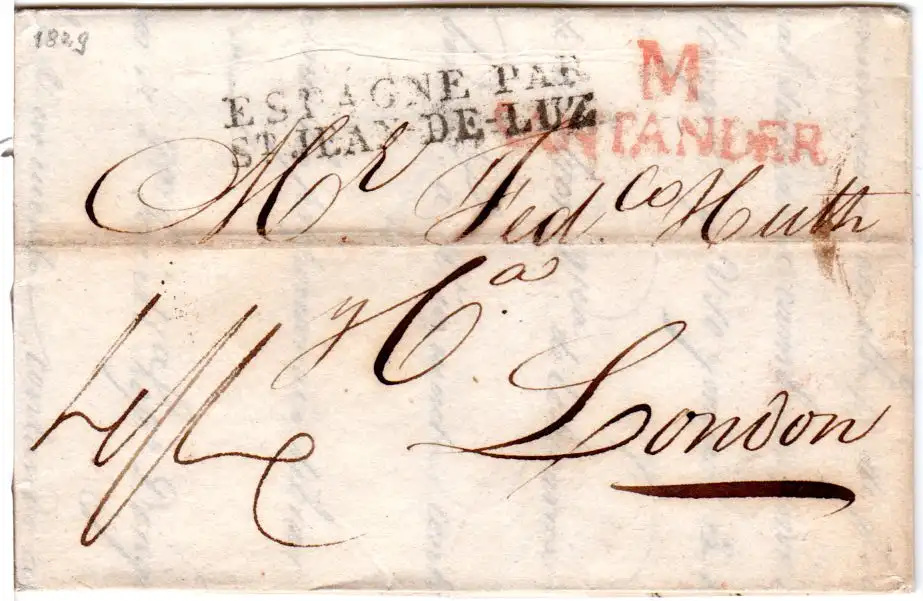 1829
ESPAGNE PAR
ST JEAN-DE-LUZ
M
SANTANDER
Mr. Fed.co Huth
y Ca.
London